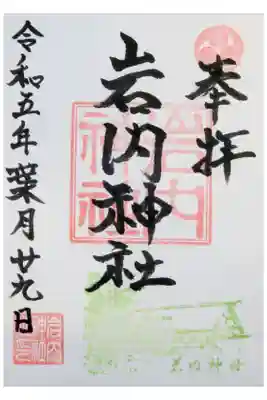 奉拝
岩内神社
令和五年葉月廿九日
岩内神社
岩内神社
岩内神社